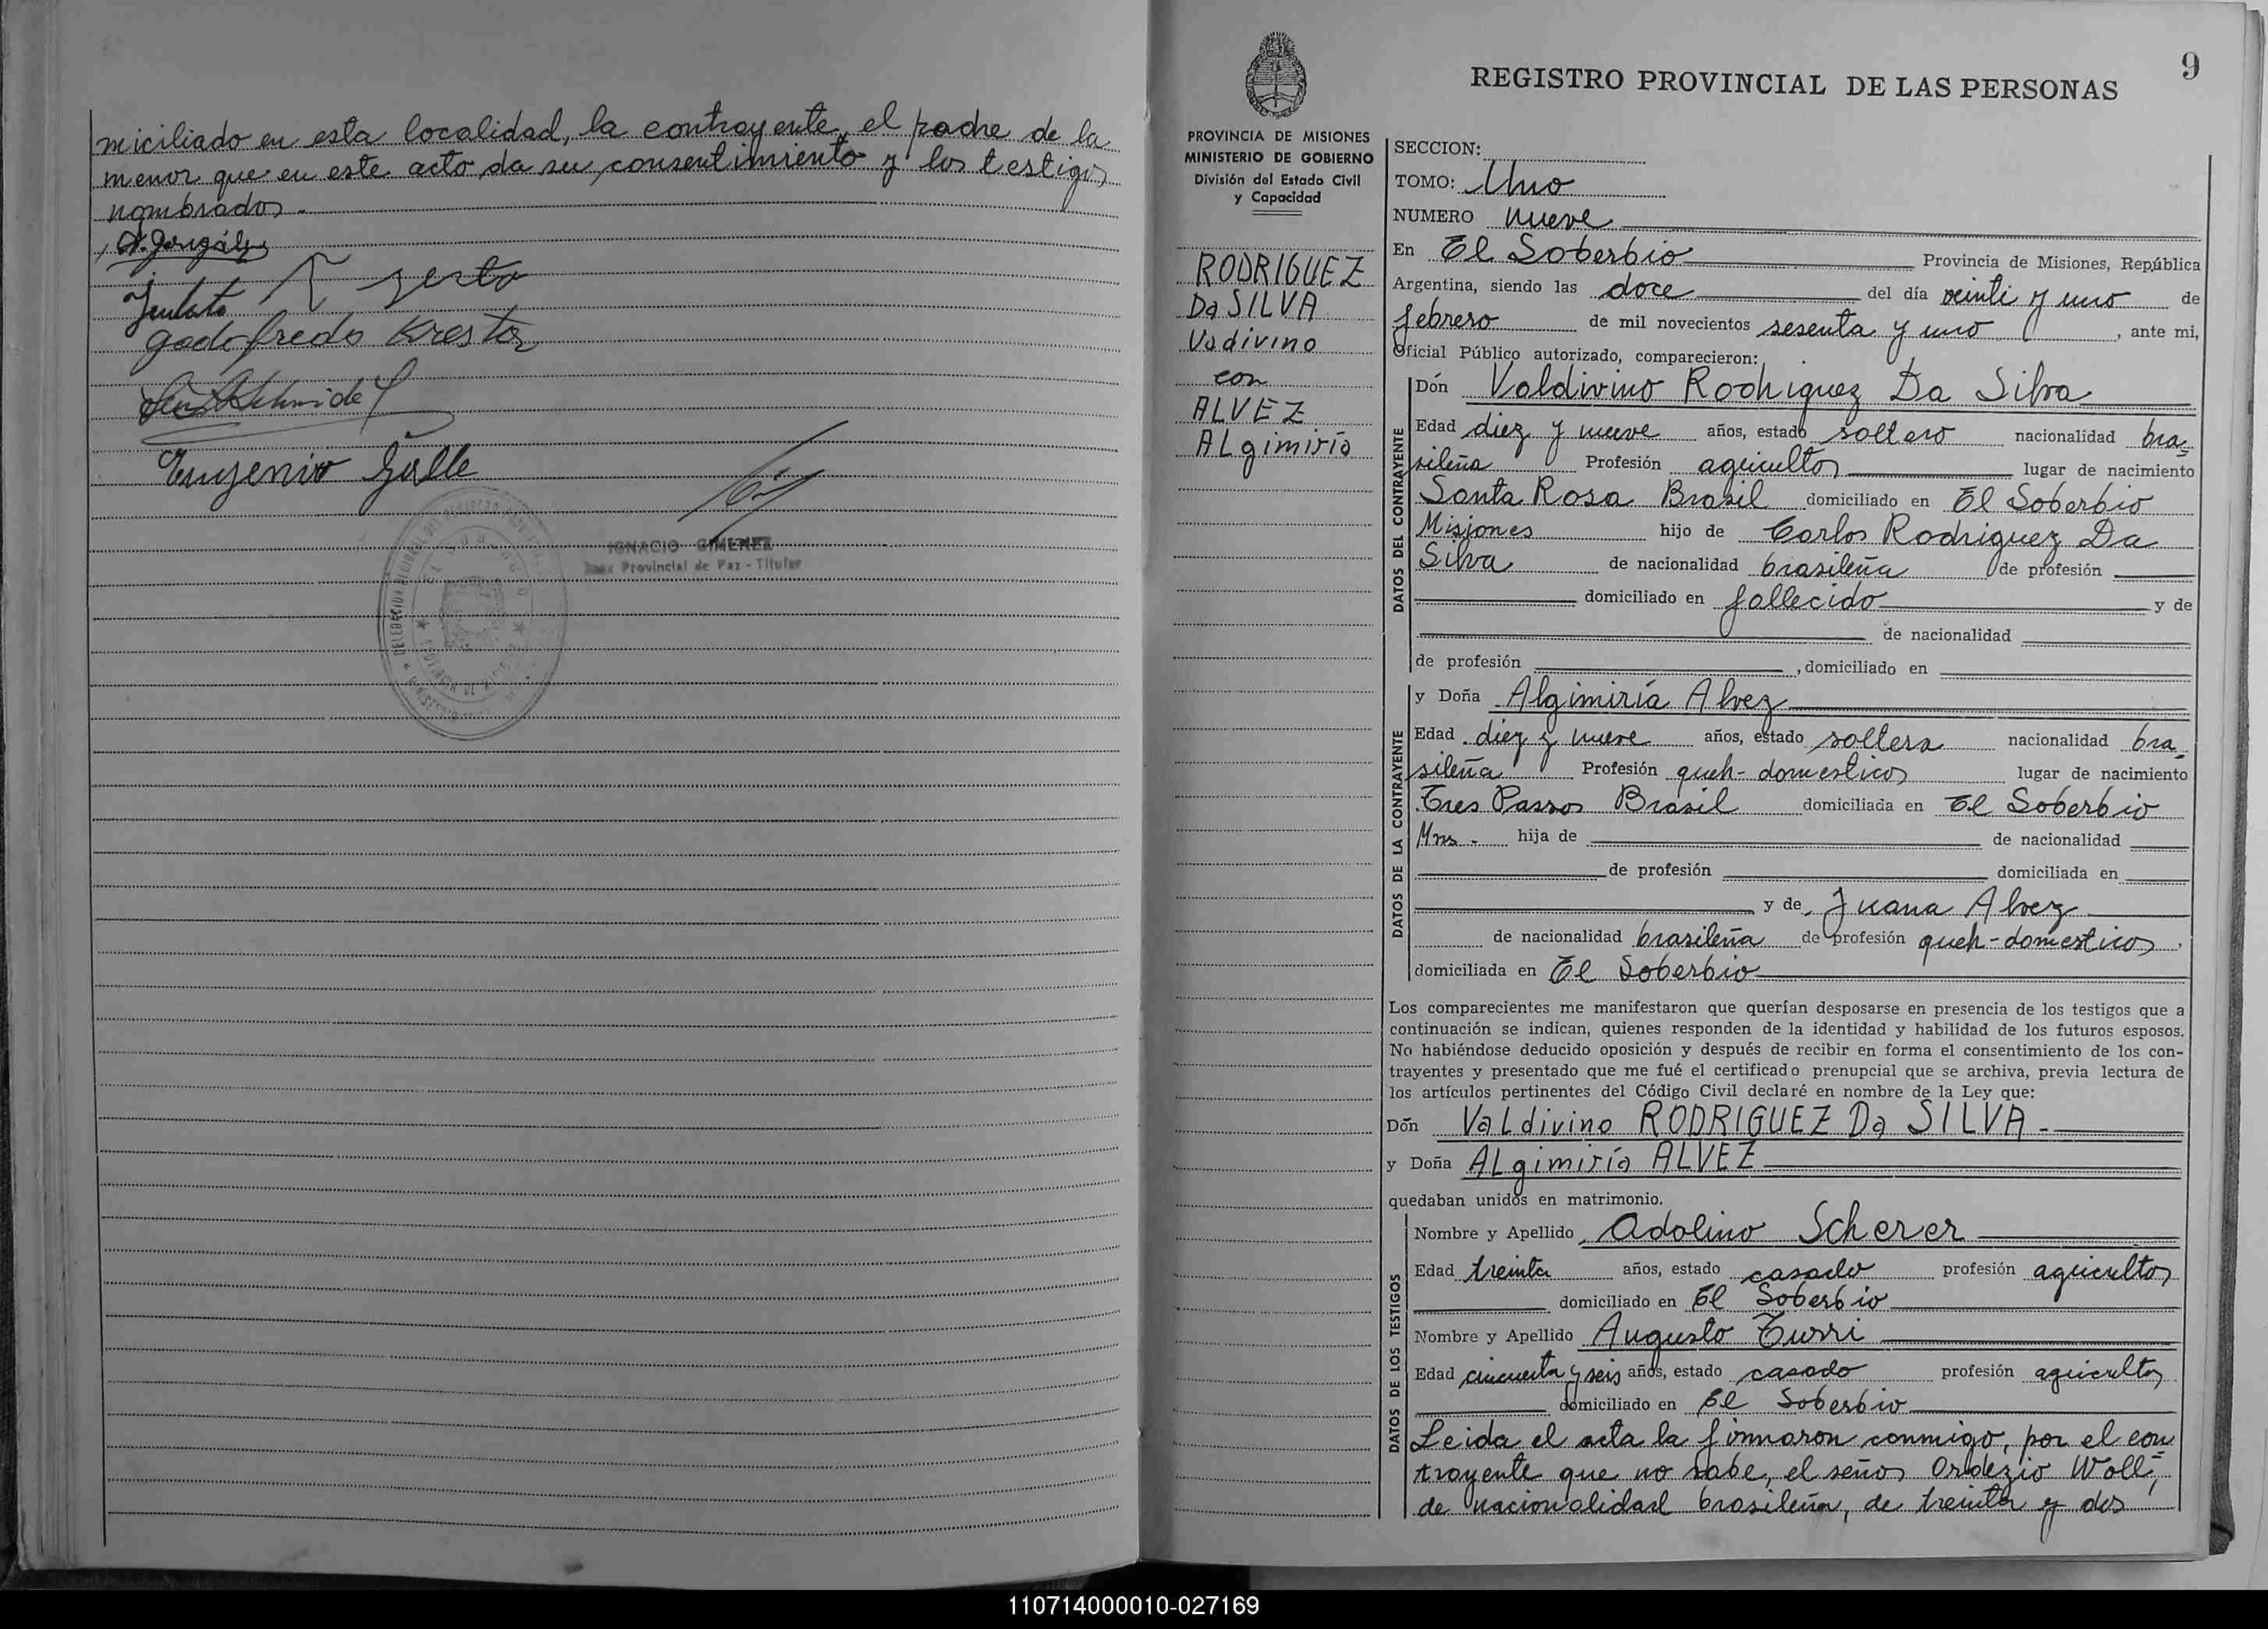 miciliado en esta localidad, la contrayente, el padre de la
menor que en este acto da su consentimiento y los testigos
nombrados.-
godofredo Krestor
Eugenio Galle
IGNACIO GIMENEZ
Juez Provincial de Paz - Titular
9
REGISTRO PROVINCIAL DE LAS PERSONAS
PROVINCIA DE MISIONES
MINISTERIO DE GOBIERNO
División del Estado Civil
y Capacidad
RODRIGUEZ
Da SILVA
Vadivino
con
ALVEZ
ALgimiría
SECCION:
TOMO: Uno
NUMERO nueve
En El Soberbio Provincia de Misiones, República
Argentina, siendo las doce del día veinti y uno de
febrero de mil novecientos sesenta y uno, ante mi,
Oficial Público autorizado, comparecieron:
DATOS DEL CONTRAYENTE
Don Valdivino Rodriguez Da Silva
Edad diez y nueve años, estado soltero nacionalidad bra=
sileña Profesión agricultor lugar de nacimiento
Santa Rosa Brasil domiciliado en El Soberbio
Misiones hijo de Carlos Rodriguez Da
Silva de nacionalidad brasileña de profesión
domiciliado en fallecido y de
de nacionalidad
de profesión , domiciliado en
DATOS DE LA CONTRAYENTE
y Doña Algimiría Alvez
Edad diez y nueve años, estado soltera nacionalidad bra
sileña Profesión queh-domesticos lugar de nacimiento
Tres Passos Brasil domiciliada en El Soberbio
Mns.- hija de de nacionalidad
de profesión domiciliada en
y de Juana Alvez
de nacionalidad brasileña de profesión queh-domesticos,
domiciliada en El Soberbio
Los comparecientes me manifestaron que querían desposarse en presencia de los testigos que a
continuación se indican, quienes responden de la identidad y habilidad de los futuros esposos.
No habiéndose deducido oposición y después de recibir en forma el consentimiento de los con-
trayentes y presentado que me fué el certificado prenupcial que se archiva, previa lectura de
los artículos pertinentes del Código Civil declaré en nombre de la Ley que:
Don VaLdivino RODRIGUEZ Da SILVA.-
y Doña ALgimiría ALVEZ
quedaban unidos en matrimonio.
DATOS DE LOS TESTIGOS
Nombre y Apellido Adolino Scherer
Edad treinta años, estado casado profesión agricultor
domiciliado en El Soberbio
Nombre y Apellido Augusto Turri
Edad cincuenta y seis años, estado casado profesión agricultor
domiciliado en El Soberbio
Leida el acta la firmaron conmigo, por el con=
trayente que no sabe, el señor Ordezio Woll,
de nacionalidad brasileña, de treinta y dos
110714000010-027169